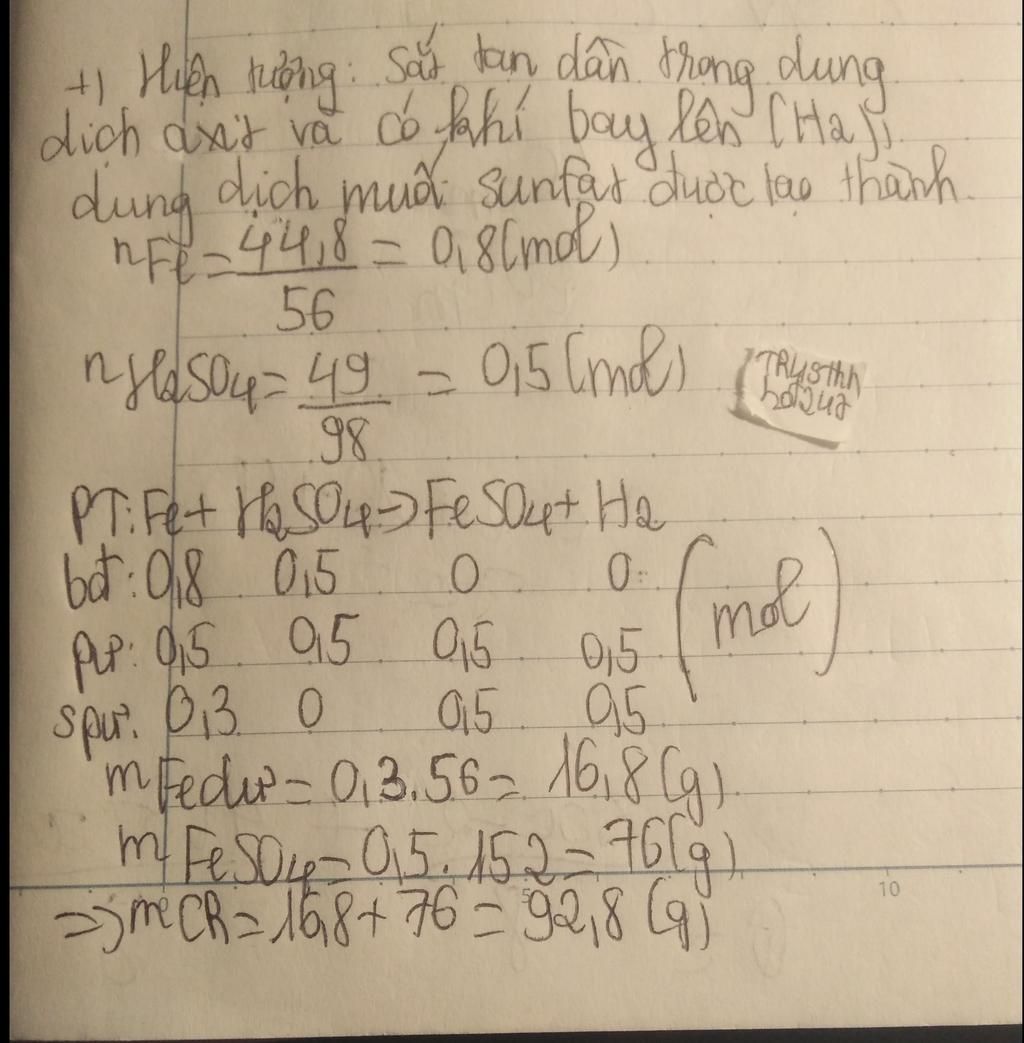 +) Hiện tượng: Sắt tan dần trong dung
dịch axit và có khí bay lên (H2),
dung dịch muối sunfat được tạo thành.
nFe = 44,8/56 = 0,8 (mol)
nH2SO4 = 49/98 = 0,5 (mol)
PT: Fe + H2SO4 → FeSO4 + H2
bđ: 0,8 0,5 0 0 (mol)
pư: 0,5 0,5 0,5 0,5
spư: 0,3 0 0,5 0,5
mFe dư = 0,3.56 = 16,8 (g)
mFeSO4 = 0,5.152 = 76 (g)
10
=> mCR = 16,8 + 76 = 92,8 (g)